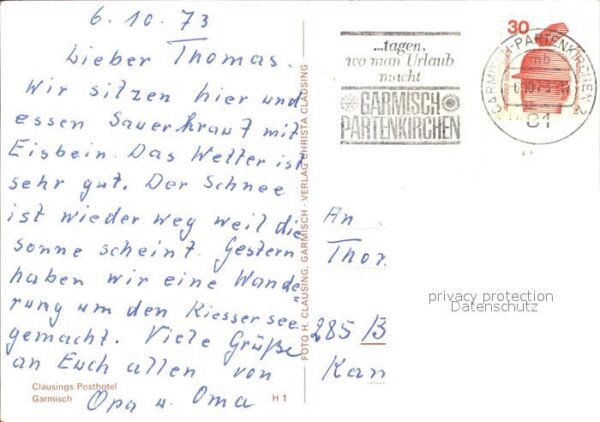 6.10.73
Lieber Thomas.
Wir sitzen hier und
essen Sauerkraut mit
Eisbein. Das Wetter ist
sehr gut. Der Schnee
ist wieder weg weil die
sonne scheint. Gestern
haben wir eine Wande
rung um den Riessersee
gemacht. Viele Grüße
an Euch allen von
Opa u. Oma
Clausings Posthotel
Garmisch
H 1
FOTO H. CLAUSING, GARMISCH · VERLAG CHRISTA CLAUSING
...tagen,
wo man Urlaub
macht
GARMISCH
PARTENKIRCHEN
30
GARMISCH-PARTENKIRCHEN 2
mb
81
An
Thor
privacy protection
Datenschutz
285 B
Kan